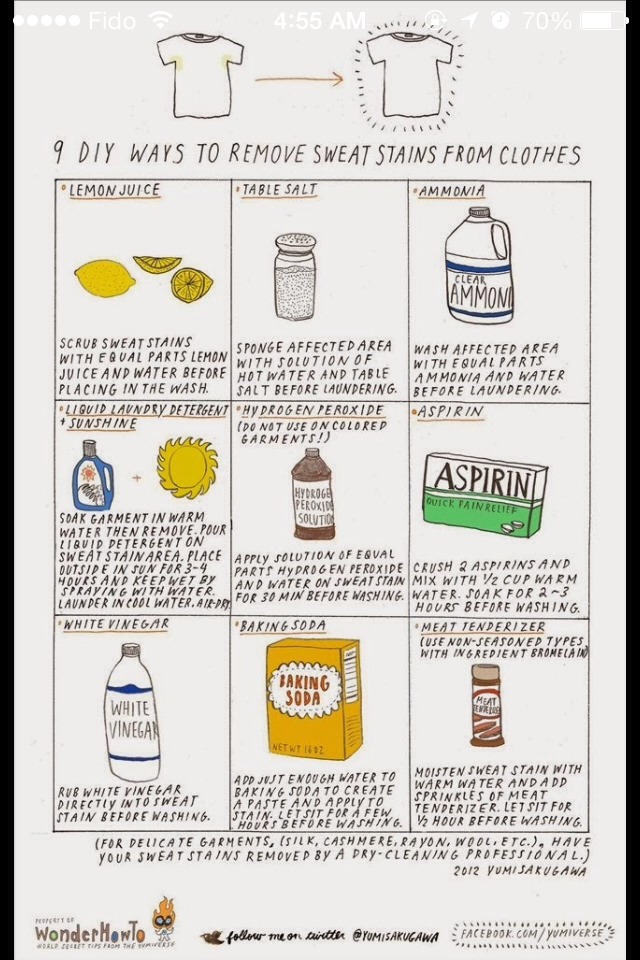 Fido 4:55 AM 70%
9 DIY WAYS TO REMOVE SWEAT STAINS FROM CLOTHES
LEMON JUICE
SCRUB SWEAT STAINS
WITH EQUAL PARTS LEMON
JUICE AND WATER BEFORE
PLACING IN THE WASH.
TABLE SALT
SPONGE AFFECTED AREA
WITH SOLUTION OF
HOT WATER AND TABLE
SALT BEFORE LAUNDERING.
AMMONIA
CLEAR
AMMONI
WASH AFFECTED AREA
WITH EQUAL PARTS
AMMONIA AND WATER
BEFORE LAUNDERING.
LIQUID LAUNDRY DETERGENT
+ SUNSHINE
+
SOAK GARMENT IN WARM
WATER THEN REMOVE. POUR
LIQUID DETERGENT ON
SWEAT STAIN AREA. PLACE
OUTSIDE IN SUN FOR 3-4
HOURS AND KEEP WET BY
SPRAYING WITH WATER.
LAUNDER IN COOL WATER. AIR-DRY.
HYDROGEN PEROXIDE
(DO NOT USE ON COLORED
GARMENTS!)
HYDROGE
PEROXIDE
SOLUTIO
APPLY SOLUTION OF EQUAL
PARTS HYDROGEN PEROXIDE
AND WATER ON SWEAT STAIN
FOR 30 MIN BEFORE WASHING.
ASPIRIN
ASPIRIN
QUICK PAIN RELIEF
CRUSH 2 ASPIRINS AND
MIX WITH 1/2 CUP WARM
WATER. SOAK FOR 2~3
HOURS BEFORE WASHING.
WHITE VINEGAR
WHITE
VINEGAR
RUB WHITE VINEGAR
DIRECTLY INTO SWEAT
STAIN BEFORE WASHING.
BAKING SODA
BAKING
SODA
NET WT 16 OZ
ADD JUST ENOUGH WATER TO
BAKING SODA TO CREATE
A PASTE AND APPLY TO
STAIN. LET SIT FOR A FEW
HOURS BEFORE WASHING.
MEAT TENDERIZER
(USE NON-SEASONED TYPES
WITH INGREDIENT BROMELAIN)
MEAT
MOISTEN SWEAT STAIN WITH
WARM WATER AND ADD
SPRINKLES OF MEAT
TENDERIZER. LET SIT FOR
1/2 HOUR BEFORE WASHING.
(FOR DELICATE GARMENTS, (SILK, CASHMERE, RAYON, WOOL, ETC.), HAVE
YOUR SWEAT STAINS REMOVED BY A DRY-CLEANING PROFESSIONAL.)
2012 YUMI SAKUGAWA
PROPERTY OF
WonderHowTo
WORLD SECRET TIPS FROM THE YUMIVERSE
follow me on twitter @YUMISAKUGAWA
FACEBOOK.COM/YUMIVERSE